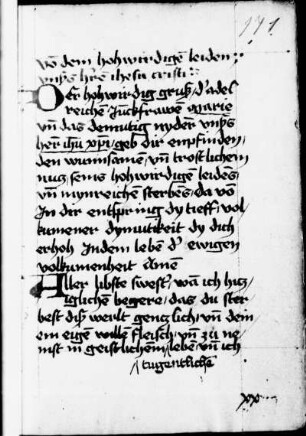 171
vō dem hohwirdigē leiden
vnßs hrē ihesu cristi
Der hohwirdig gruß d' adel
reichē Juckfrawē Marie
vn̄ das demutig nyder vnßs
herī ihū xp̄i / geb dir empfinden /
den wunsamē / vn̄ trostlichem
nucz seins hohwirdigē leidēs /
vn̄ mynreichē sterbēs / da vō
In dir entspring dy tieff / vol
kumener dymutikeit dy dich
erhoh Indem lebē d' ewigen
volkumenheit Amē
Aller libste swest' / wā ich hicz /
iglichē begere / das du ster
best diß werlt gencz lich / vn̄ dem
eim eigē wille fleisch / vn̄ zu ne
mst in geistlichem / lebē vn̄ ich
tugentlichē
xx